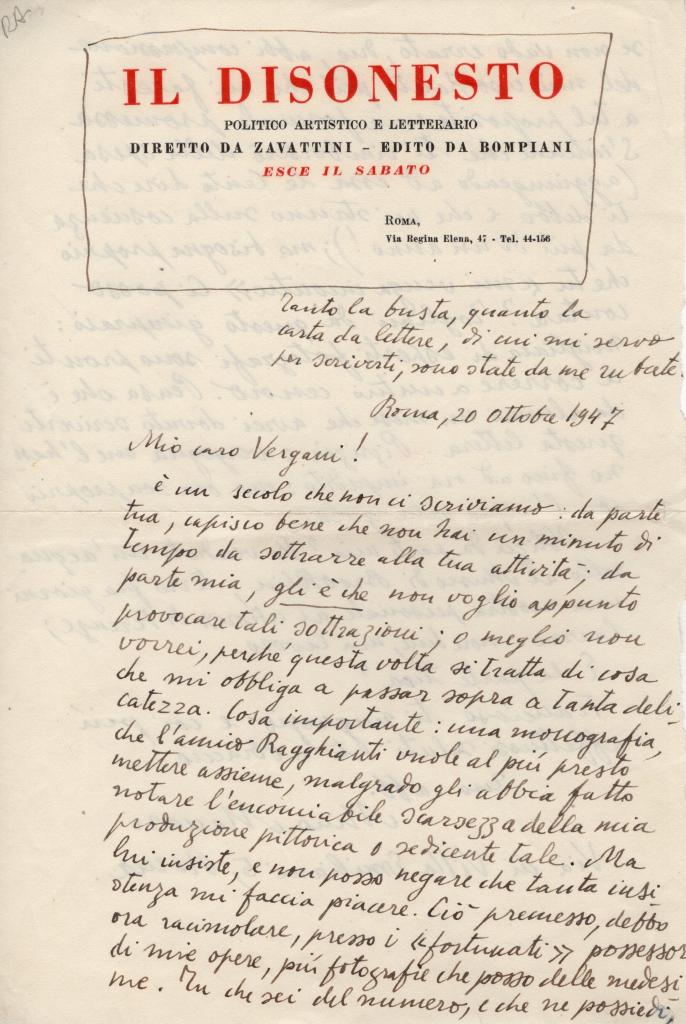 RA
IL DISONESTO
POLITICO ARTISTICO E LETTERARIO
DIRETTO DA ZAVATTINI – EDITO DA BOMPIANI
ESCE IL SABATO
ROMA,
Via Regina Elena, 47 - Tel. 44-156
Tanto la busta, quanto la
carta da lettere, di cui mi servo
per scriverti, sono state da me rubate.
Roma, 20 ottobre 1947
Mio caro Vergani!
è un secolo che non ci scriviamo: da parte
tua, capisco bene che non hai un minuto di
tempo da sottrarre alla tua attività; da
parte mia, gli è che non voglio appunto
provocare tali sottrazioni; o meglio non
vorrei, perché questa volta si tratta di cosa
che mi obbliga a passar sopra a tanta deli-
catezza. Cosa importante: una monografia,
che l'amico Ragghianti vuole al più presto
mettere assieme, malgrado gli abbia fatto
notare l'encomiabile scarsezza della mia
produzione pittorica o sedicente tale. Ma
lui insiste, e non posso negare che tanta insi
stenza mi faccia piacere. Ciò premesso, debbo
ora racimolare, presso i «fortunati» possessor
di mie opere, più fotografie che posso delle medesi
me. Tu che sei del numero, e che ne possiedi,